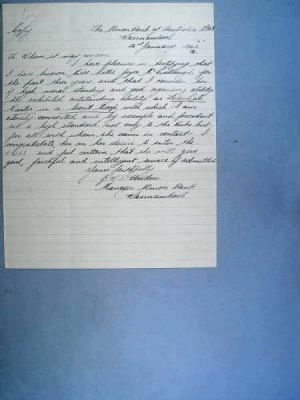 Copy The Union Bank of Australia Ltd
Warrnambool
January
To Whom it may concern
I have pleasure in testifying that
I have known Miss Betty Joyce for
the past three years and that I consider her
of high moral standing and good organizing ability
She exhibited outstanding ability as
leader in a Scout Troop with which I am
closely connected and by example and precedent
set a high standard not only to the but
for all with whom she came in contact. I
congratulate her on her desire to enter the
and feel certain that she will give
good, faithful and intelligent service if admitted
Yours faithfully
Manager Union Bank
Warrnambool